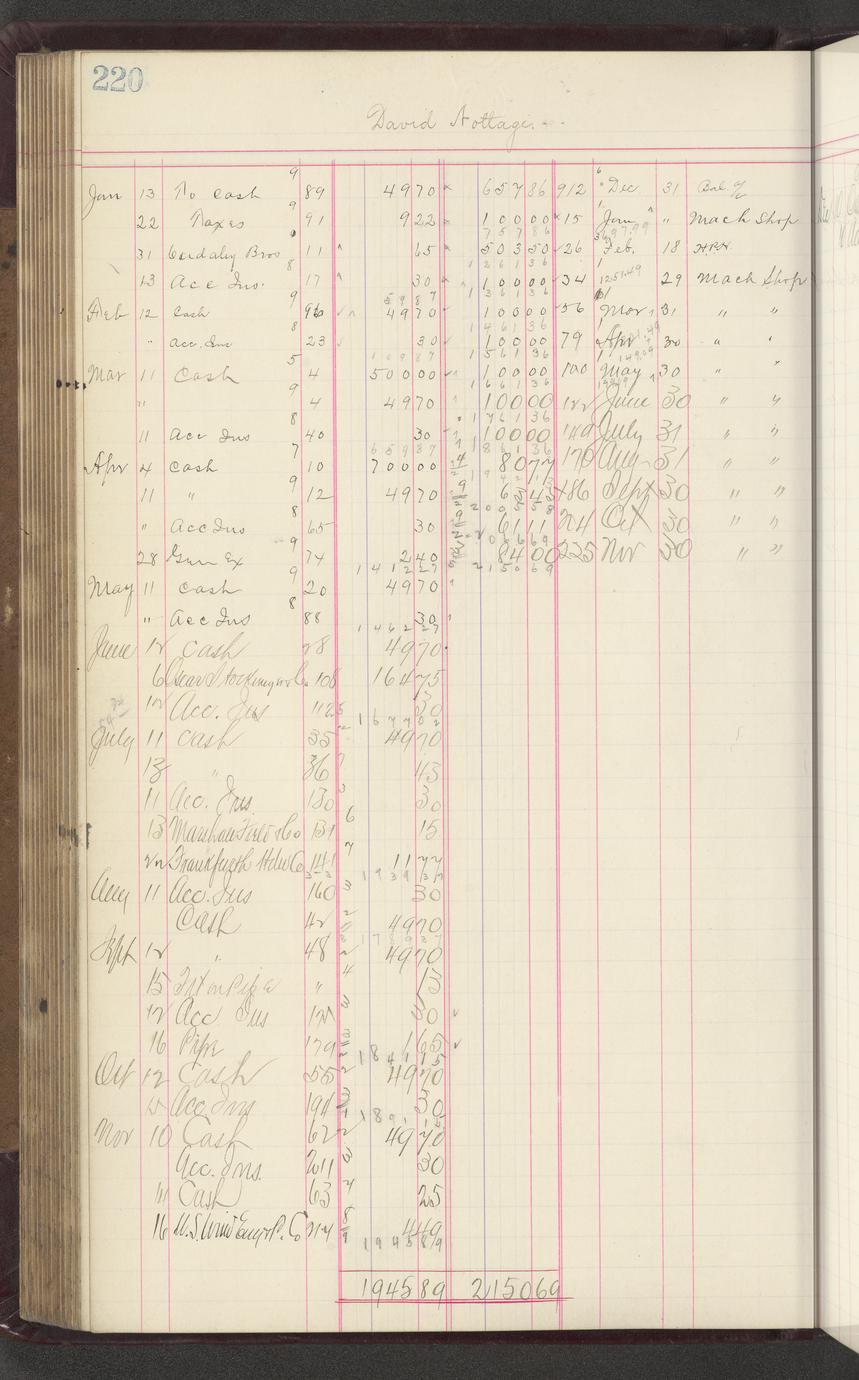 220
David Nottage
Jan 13 To Cash 89 4970 65786 912 Dec 31 Bal.
22 Taxes 91 922 10000 15 Jan " Mach Shop
31 Cudahy Bros 11 65 50350 26 Feb. 18
13 Acc Ins. 17 30 10000 34 29 Mach Shop
Feb 12 Cash 96 4970 10000 56 Mar 31 " "
" Acc. Ins 23 30 10000 79 Apr 30 " "
Mar 11 Cash 4 50000 10000 100 May 30 " "
" 4 4970 10000 122 June 30 " "
11 Acc Ins 40 30 10000 149 July 31 " "
Apr 4 Cash 10 70000 8077 170 Aug 31 " "
11 " 12 4970 186 Sept 30 " "
" Acc Ins 65 30 6111 204 Oct 30 " "
28 Gen Ex 74 240 8400 225 Nov 30 " "
May 11 Cash 20 4970
" Acc Ins 88 30
June 12 Cash 28 4970
6 108 16475
12 Acc. Ins 112 30
July 11 Cash 35 4970
13 " 36 43
11 Acc. Ins. 130 30
13 Marshall Field & Co 131 15
22 Frankfurth Hdw Co 141 1177
Aug 11 Acc. Ins 160 30
Cash 42 4970
Sept 12 " 48 4970
15 " 13
12 Acc Ins 30
16 Pipe 179 165
Oct 12 Cash 55 4970
12 Acc Ins 194 30
Nov 10 Cash 62 4970
Acc. Ins. 211 30
" Cash 63 25
16 U.S. Wind Eng & P. Co 214 449
194589 215069